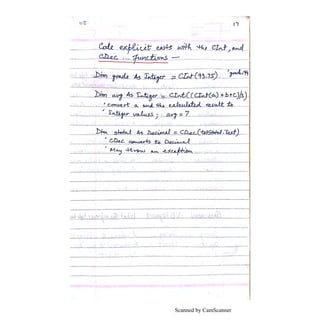 17
Code explicit casts with the CInt, and
CDec ... functions —
Dim grade As Integer = CInt(93.75) 'grade=94
Dim avg As Integer = CInt((CInt(a)+b+c)/3)
' convert a and the calculated result to
' Integer values; avg = 7
Dim stotal As Decimal = CDec(txtStotal.Text)
' CDec converts to Decimal
' May throw an exception
Scanned by CamScanner